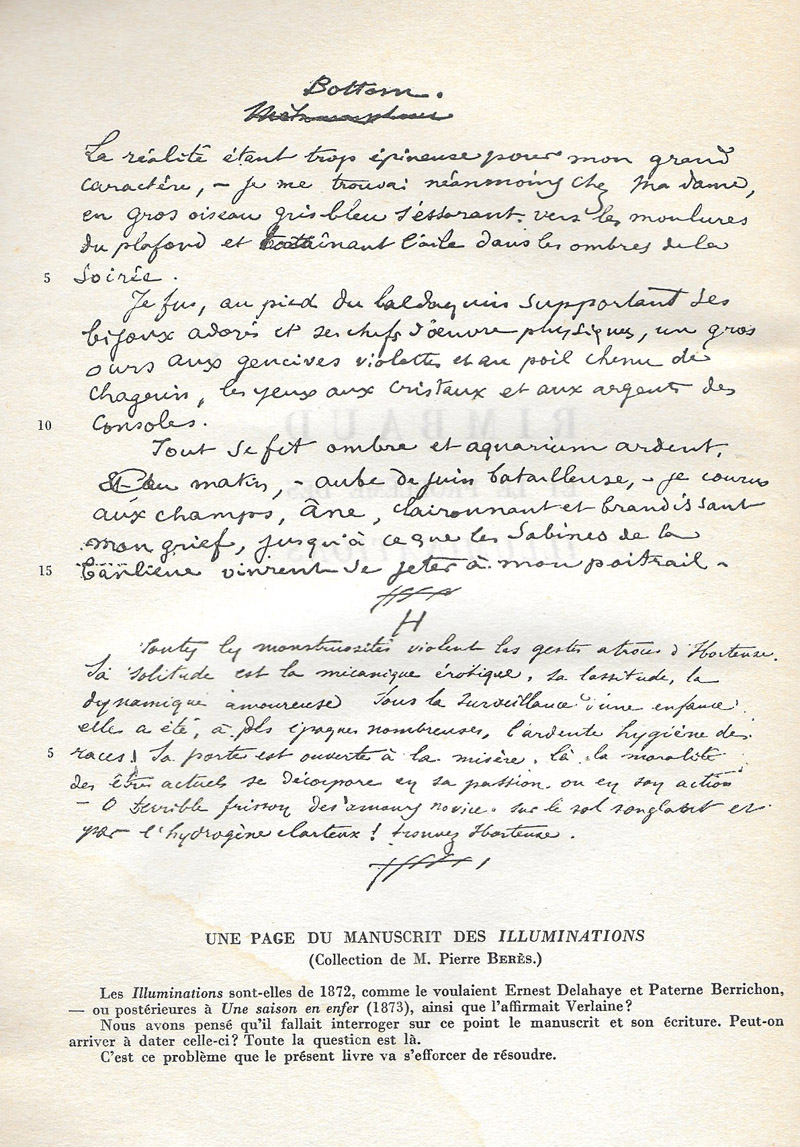 Bottom.
Métamorphoses
La réalité étant trop épineuse pour mon grand
caractère, – je me trouvai néanmoins chez Madame,
en gros oiseau gris bleu s'essorant vers les moulures
du plafond et traînant l'aile dans les ombres de la
5 soirée.
Je fus, au pied du baldaquin supportant ses
bijoux adorés et ses chefs d'œuvre physiques, un gros
ours aux gencives violettes et au poil chenu de
chagrin, les yeux aux cristaux et aux argents des
10 consoles.
Tout se fit ombre et aquarium ardent.
Au matin, – aube de juin batailleuse, – je courus
aux champs, âne, claironnant et brandissant
mon grief, jusqu'à ce que les Sabines de la
15 banlieue vinrent se jeter à mon poitrail –
H
Toutes les monstruosités violent les gestes atroces d'Hortense.
Sa solitude est la mécanique érotique, sa lassitude, la
dynamique amoureuse Sous la surveillance d'une enfance
elle a été, à des époques nombreuses, l'ardente hygiène des
5 races. Sa porte est ouverte à la misère. là la moralité
des êtres actuels se décorpore en sa passion ou en son action
– O terrible frisson des amours novices sur le sol sanglant et
par l'hydrogène clarteux ! trouvez Hortense.
UNE PAGE DU MANUSCRIT DES ILLUMINATIONS
(Collection de M. Pierre BERÈS.)
Les Illuminations sont-elles de 1872, comme le voulaient Ernest Delahaye et Paterne Berrichon,
— ou postérieures à Une saison en enfer (1873), ainsi que l'affirmait Verlaine ?
Nous avons pensé qu'il fallait interroger sur ce point le manuscrit et son écriture. Peut-on
arriver à dater celle-ci ? Toute la question est là.
C'est ce problème que le présent livre va s'efforcer de résoudre.